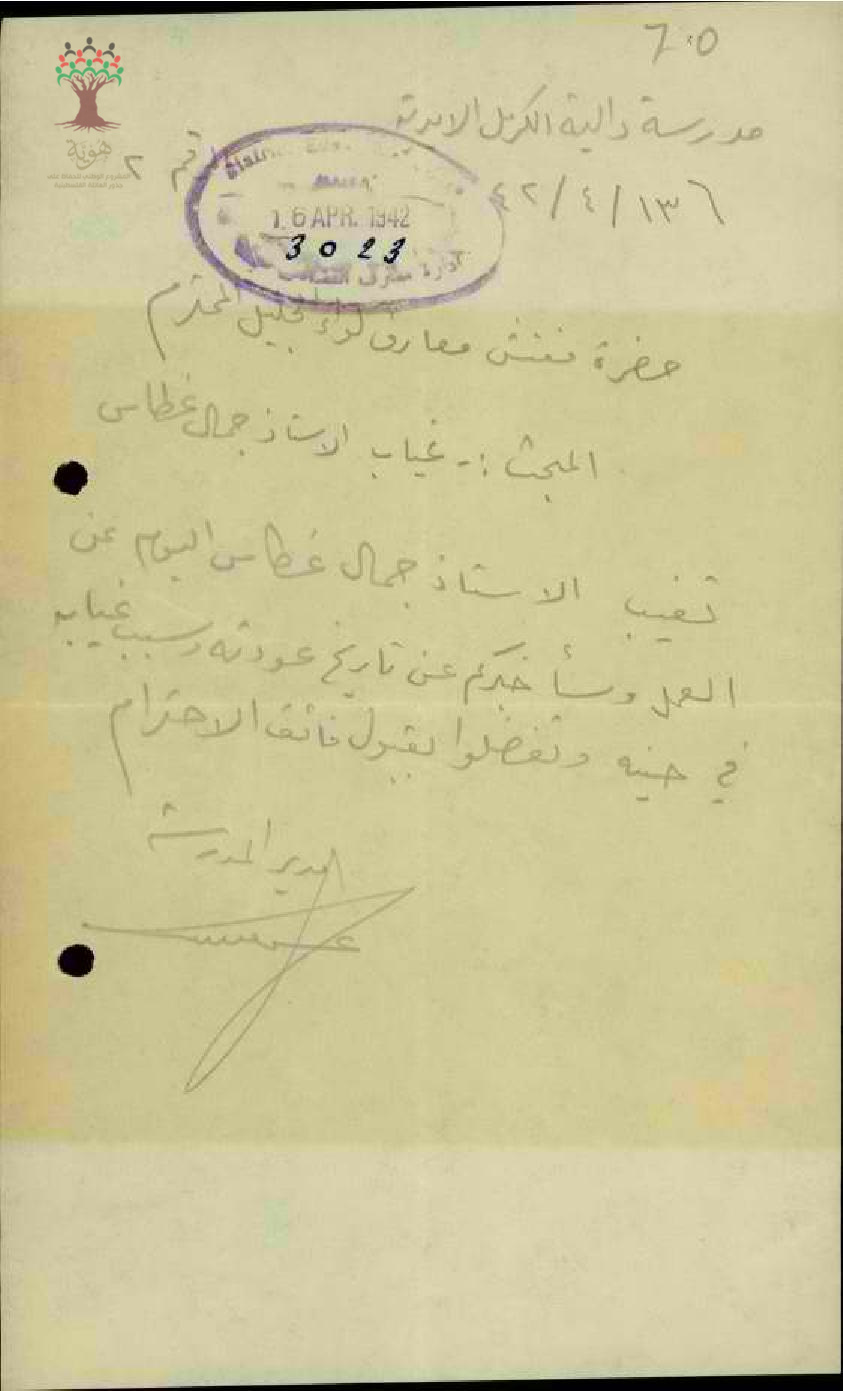 7.0
مدرسة دالية الكرمل الاميرية
رقم ٢
٤٢/٤/١٣٦
16 APR. 1942
3023
ادارة معارف
حضرة مفتش معارف لواء الجليل المحترم
المبحث :- غياب الاستاذ جمال غطاس
تغيب الاستاذ جمال غطاس اليوم عن
العمل وسأخبركم عن تاريخ عودته وسبب غيابه
في حينه وتفضلوا بقبول فائق الاحترام
مدير المدرسة
هوية